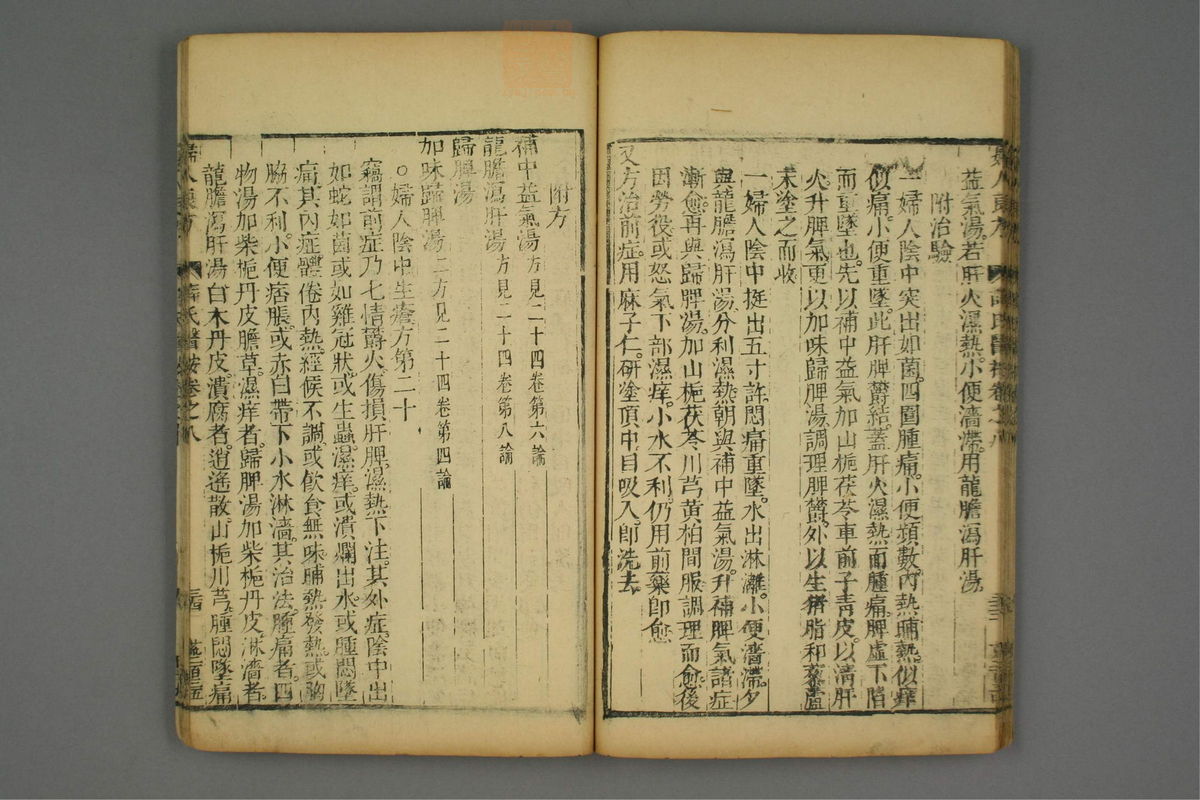 益氣湯若肝火濕熱小便濇滯用龍膽瀉肝湯
附治驗
一婦人陰中突出如菌四圍腫痛小便頻數內熱晡熱似痒
似痛小便重墜此肝脾鬱結蓋肝火濕熱而腫痛脾虛下陷
而重墜也先以補中益氣加山梔茯苓車前子靑皮以清肝
火升脾氣更以加味歸脾湯調理脾鬱外以生猪脂和藜蘆
末塗之而收
一婦人陰中挺出五寸許悶痛重墜水出淋漓小便濇滯夕
與龍膽瀉肝湯分利濕熱朝與補中益氣湯升補脾氣諸症
漸愈再與歸脾湯加山梔茯苓川芎黃柏間服調理而愈後
因勞役或怒氣下部濕痒小水不利仍用前藥卽愈
又方治前症用麻子仁研塗頂中目吸入卽洗去
婦人良方
薛氏醫按卷之八
附方
補中益氣湯方見二十四卷第六論
龍膽瀉肝湯方見二十四卷第八論
歸脾湯
加味歸脾湯二方見二十四卷第四論
○婦人陰中生瘡方第二十
竊謂前症乃七情鬱火傷損肝脾濕熱下注其外症陰中出
如蛇如菌或如雞冠狀或生蟲濕痒或潰爛出水或腫悶墜
痛其內症體倦內熱經候不調或飲食無味晡熱發熱或胸
脇不利小便痞脹或赤白帶下小水淋濇其治法腫痛者四
物湯加柴梔丹皮膽草濕痒者歸脾湯加柴梔丹皮淋濇者
龍膽瀉肝湯白木丹皮潰腐者逍遙散山梔川芎腫悶墜痛
婦人良方
薛氏醫按卷之八